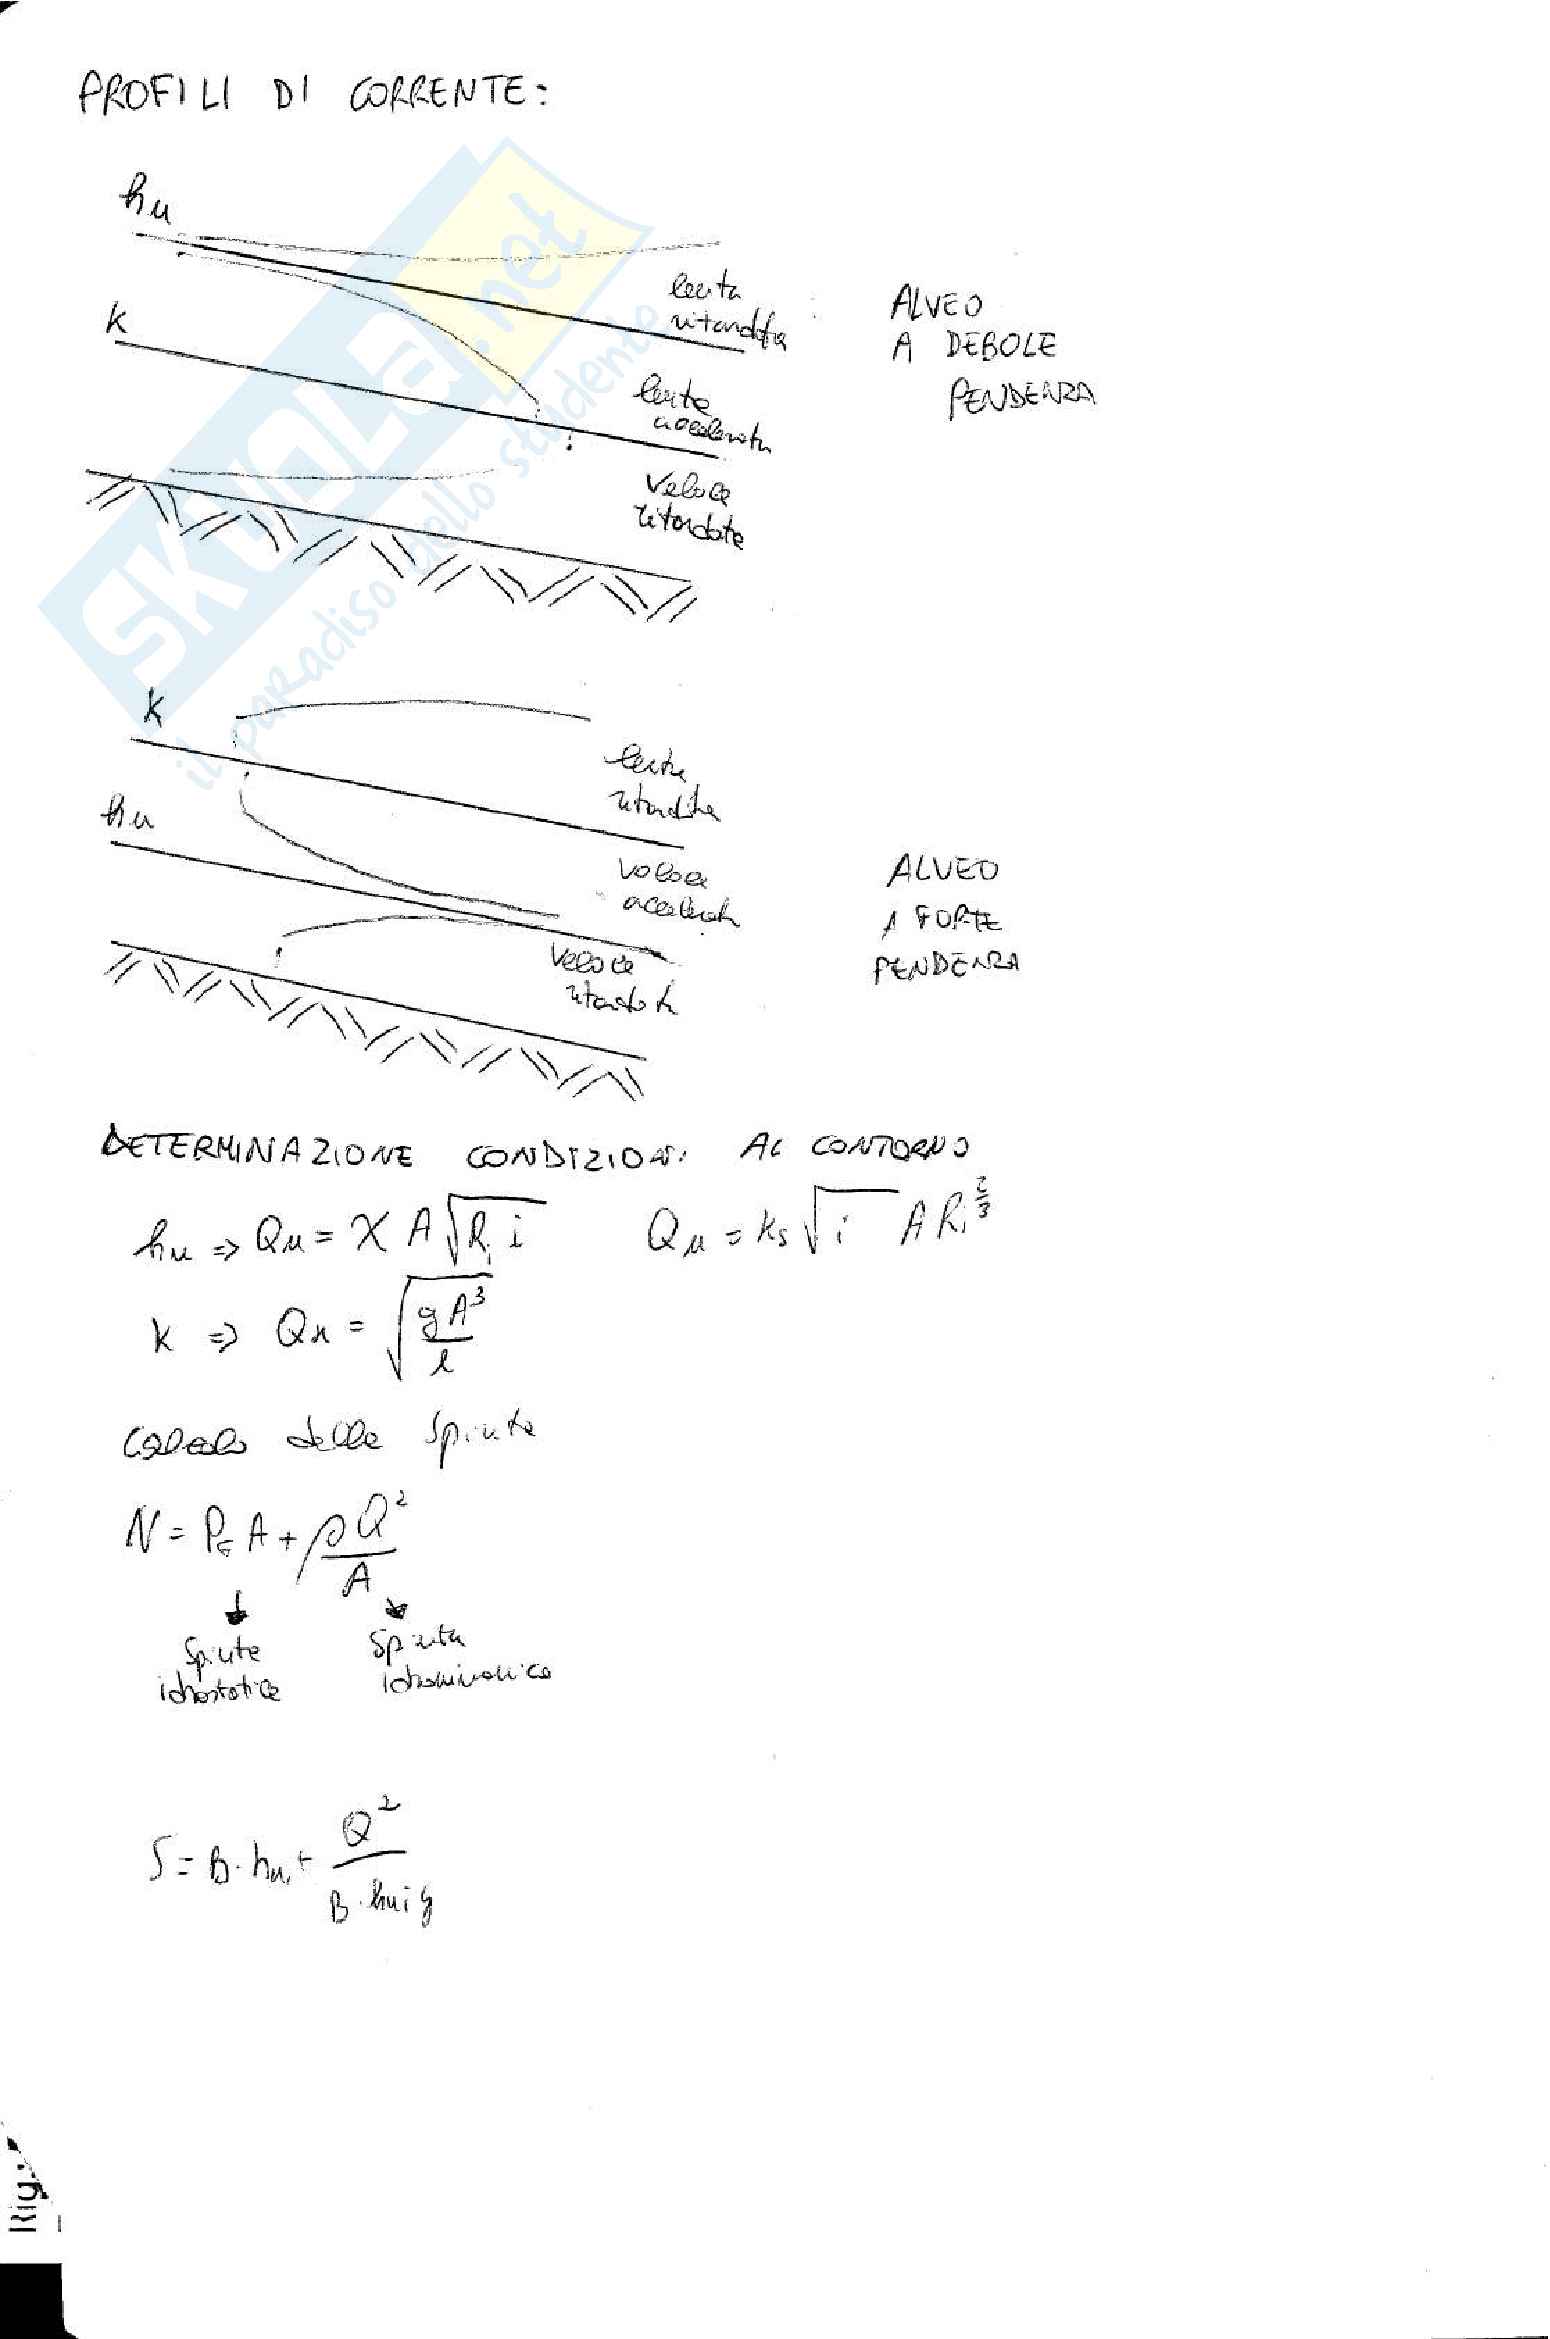 PROFILI DI CORRENTE:
hu
k
lenta
ritardata
lenta
accelerata
veloce
ritardata
ALVEO
A DEBOLE
PENDENZA
SKUOLA.net
il paradiso dello studente
k
hu
lenta
ritardata
veloce
accelerata
veloce
ritardata
ALVEO
A FORTE
PENDENZA
DETERMINAZIONE CONDIZIONI AL CONTORNO
hu => Qu = χ A √(Ri i) Qu = ks √i A Ri^(2/3)
k => Qu = √(gA³/l)
Calcolo delle Spinte
N = PG A + ρQ²/A
Spinta
idrostatica
Spinta
idrodinamica
S = B·hu + Q²/(B·hui g)
Rig.